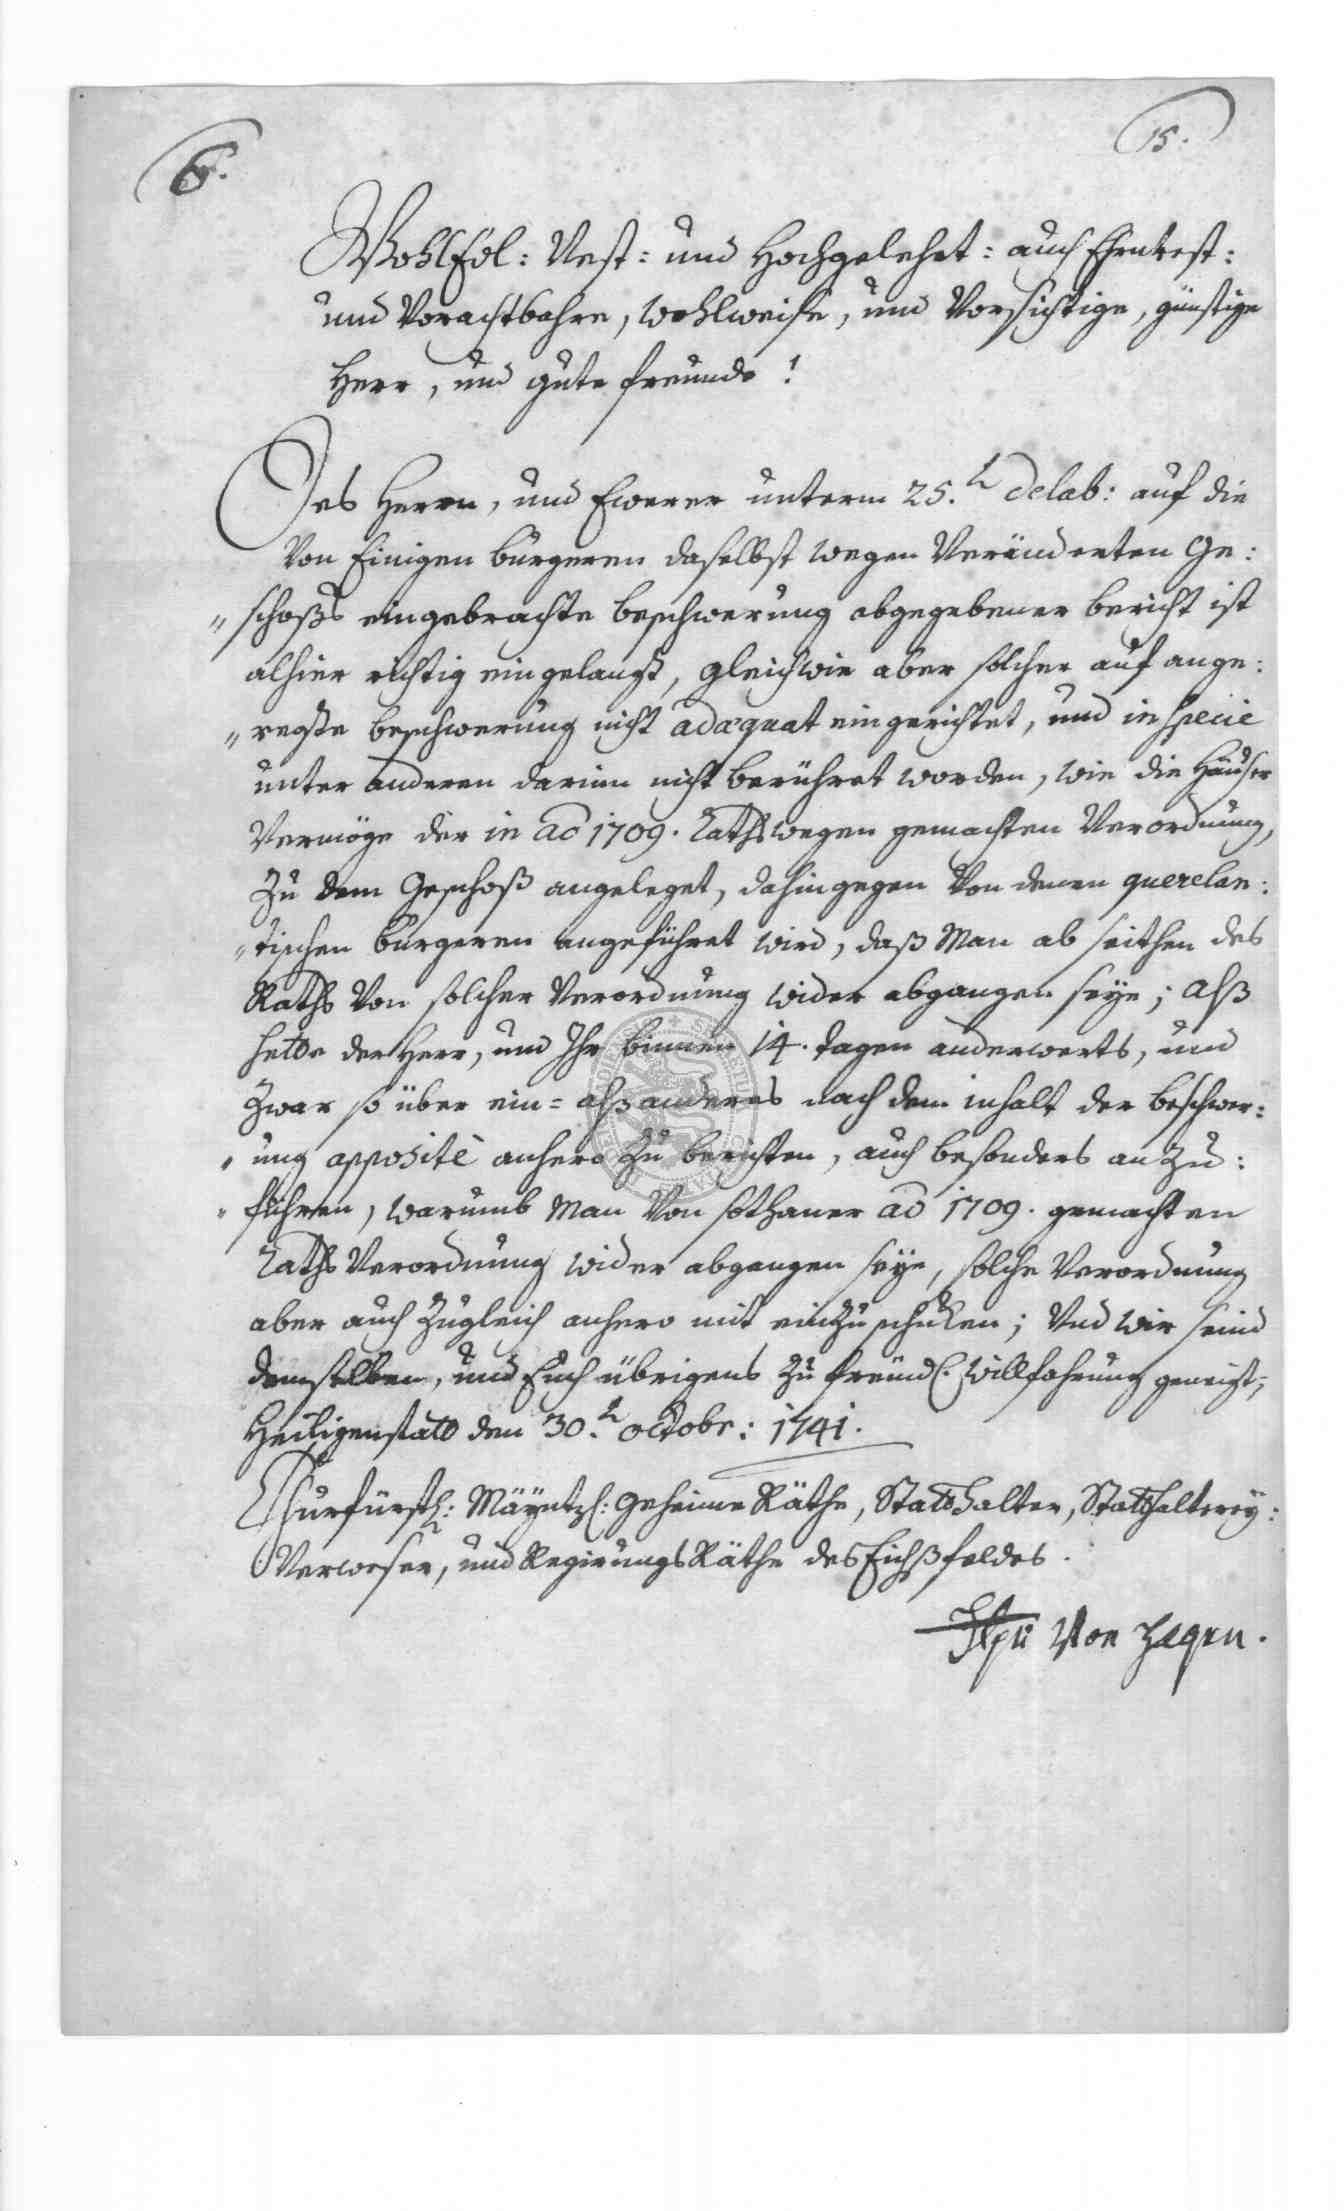 6.
15.
WohlEdl: Vest: und Hochgelehrt: auch Ehrnvest:
und Vorachtbahre, wohlweise, und Vorsichtige, günstige
Herr, und gute freunde!
Des Herrn, und Ewerer unterm 25.t delab: auf die
Von Einigen bürgeren daselbst wegen Veränderten Ge:
„ schoßs eingebrachte beschwerung abgegebener bericht ist
alhier richtig eingelangt, gleichwie aber solcher auf ange:
„ regte beschwerung nicht adæquat eingerichtet, und in specie
unter anderen darinn nicht berühret worden, wie die Häuser
Vermöge der in ao 1709. Rathswegen gemachten Verordnung,
Zu dem Geschoß angeleget, dahingegen Von denen querelan:
„ tischen bürgeren angeführet wird, daß Man ab seithen des
Raths Von solcher Verordnung wider abgangen seye; alß
hette der Herr, und Ihr binnen 14. tagen anderwerts, und
Zwar so über ein= alß anderes nach dem inhalt der beschwer:
„ ung appositè anhero Zu berichten, auch besonders an Zu:
„ führen, warumb Man Von sothaner ao 1709. gemachten
Raths Verordnung wider abgangen seye, solche Verordnung
aber auch Zugleich anhero mit einZuschicken; Und wir seind
demselben, und Euch übrigens Zu freundl. willfahrung geneigt;
Heiligenstatt den 30.t octobr: 1741.
Churfürstl: Mäyntzl: Geheime Räthe, Statthalter, Statthalterey:
Verweser, und Regirungs Räthe des Eichßfeldes.
Von Hagen.